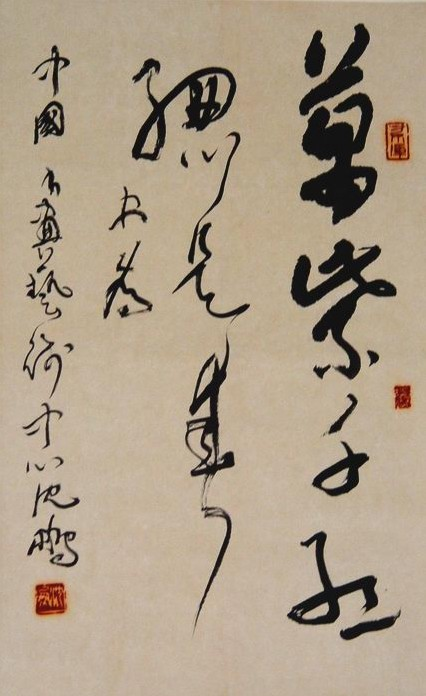 萬紫千紅
總是春
書為
中國書畫藝術中心沈鵬